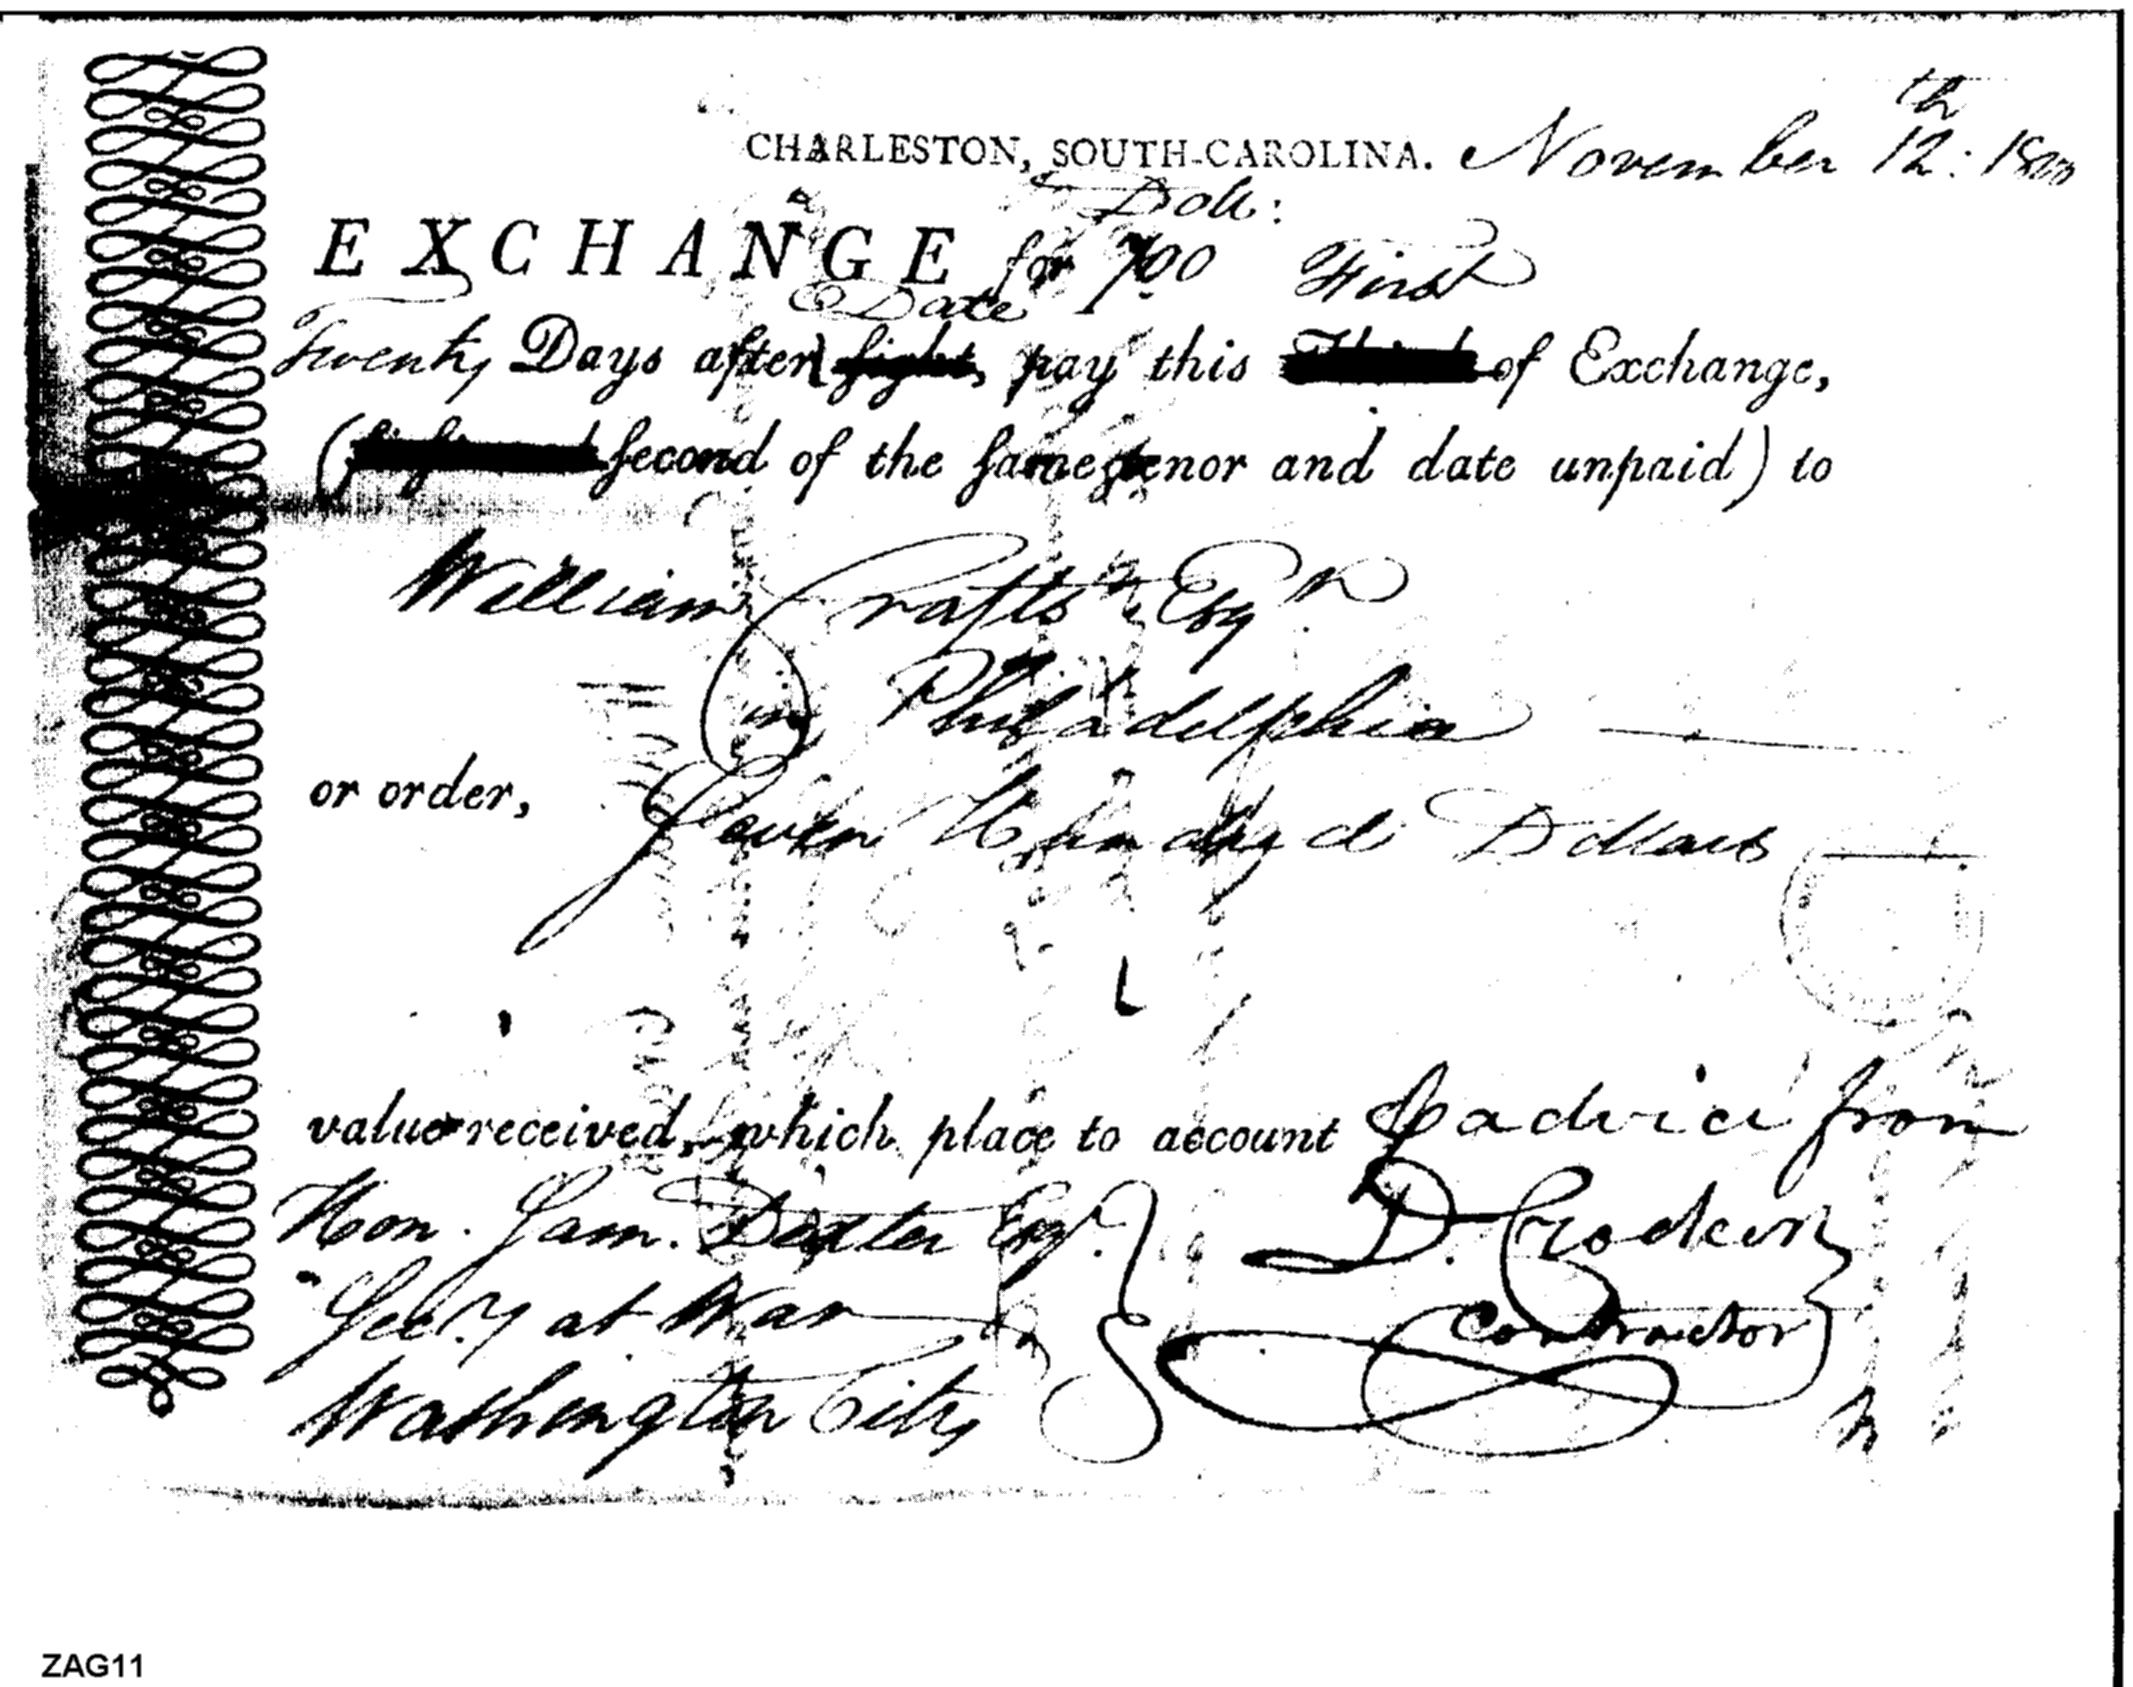 CHARLESTON, SOUTH-CAROLINA. November 12th: 1800
Doll:
EXCHANGE for 700 First
Date
Twenty Days after sight, pay this Third of Exchange,
( second of the same tenor and date unpaid) to
William Crafts Esqr
in Philadelphia
or order, Seven Hundred Dollars
value received, which place to account advice from
Hon. Sam. Dexter Esqr. D. Crocker
Secy at War Contractor
Washington City
ZAG11